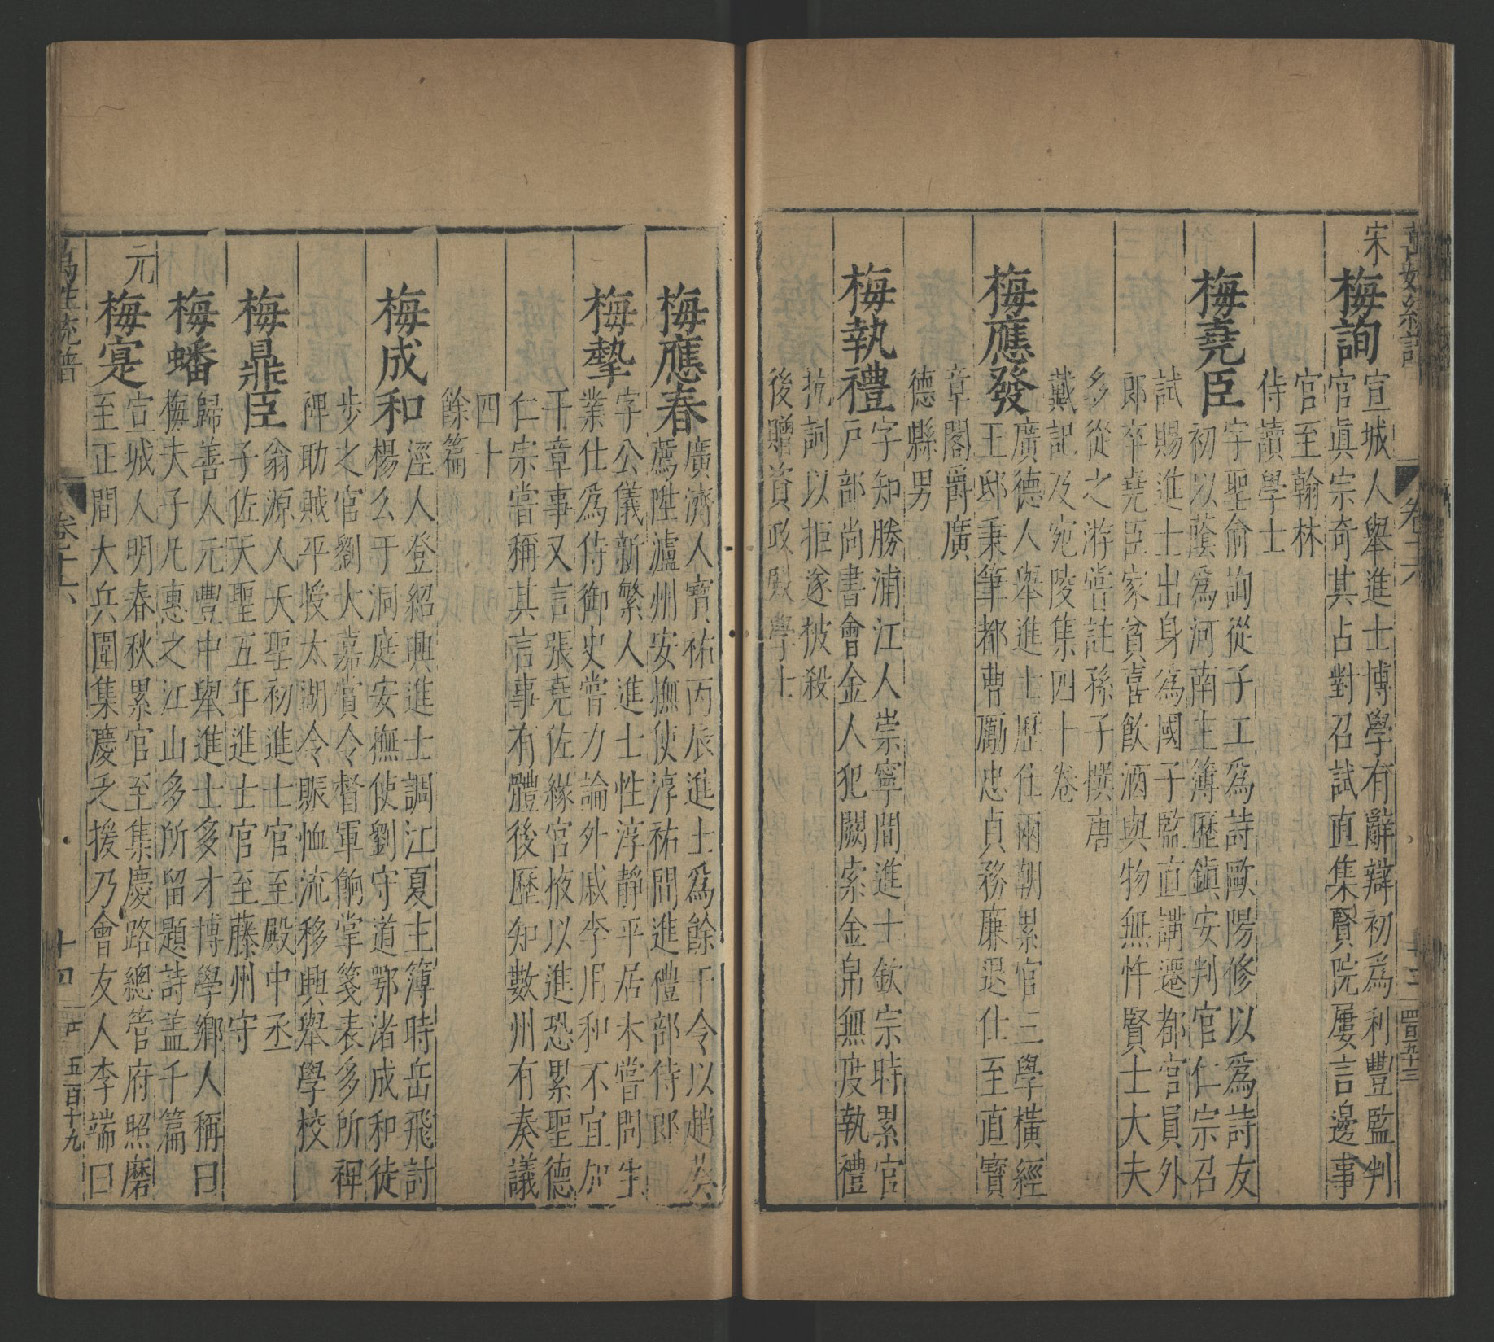 宋
梅詢
宣城人舉進士博學有辭辯初爲利豐監判
官眞宗奇其占對召試直集賢院屢言邊事
官至翰林
侍讀學士
梅堯臣
字聖俞詢從子工爲詩歐陽修以爲詩友
初以蔭爲河南主簿歷鎭安判官仁宗召
試賜進士出身爲國子監直講遷都官員外
郎卒堯臣家貧喜飲酒與物無忤賢士大夫
多從之游嘗註孫子撰唐
載記及宛陵集四十卷
梅應發
廣德人舉進士歷仕兩朝累官三學橫經
王邸秉筆都曹勵忠貞務廉退仕至直寳
章閣爵廣
德縣男
梅執禮
字知勝浦江人崇寧間進士欽宗時累官
戸部尚書會金人犯闕索金帛無度執禮
抗詞以拒遂被殺
後贈資政殿學士
卷二六
十三
梅應春
廣濟人寳祐丙辰進士爲餘干令以趙葵
薦陞瀘州安撫使淳祐間進禮部侍郎
梅摯
字公儀新繁人進士性淳靜平居未嘗問生
業仕爲侍御史嘗力論外戚李用和不宜加
平章事又言張堯佐緣宮掖以進恐累聖德
仁宗嘗稱其言事有體後歷知數州有奏議
四十
餘篇
梅成和
涇人登紹興進士調江夏主簿時岳飛討
楊么于洞庭安撫使劉守道鄂渚成和徒
步之官劉大嘉賞令督軍餉掌箋表多所裨
裨助賊平授太湖令賑恤流移興舉學校
梅鼎臣
翁源人天聖初進士官至殿中丞
子佐天聖五年進士官至藤州守
梅蟠
歸善人元豐中舉進士多才博學鄉人稱曰
梅夫子凡惠之江山多所留題詩盖千篇
元
梅寔
宣城人明春秋累官至集慶路總管府照磨
至正間大兵圍集慶乏援乃會友人李端曰
萬姓統譜
卷二十六
十四
五百十九